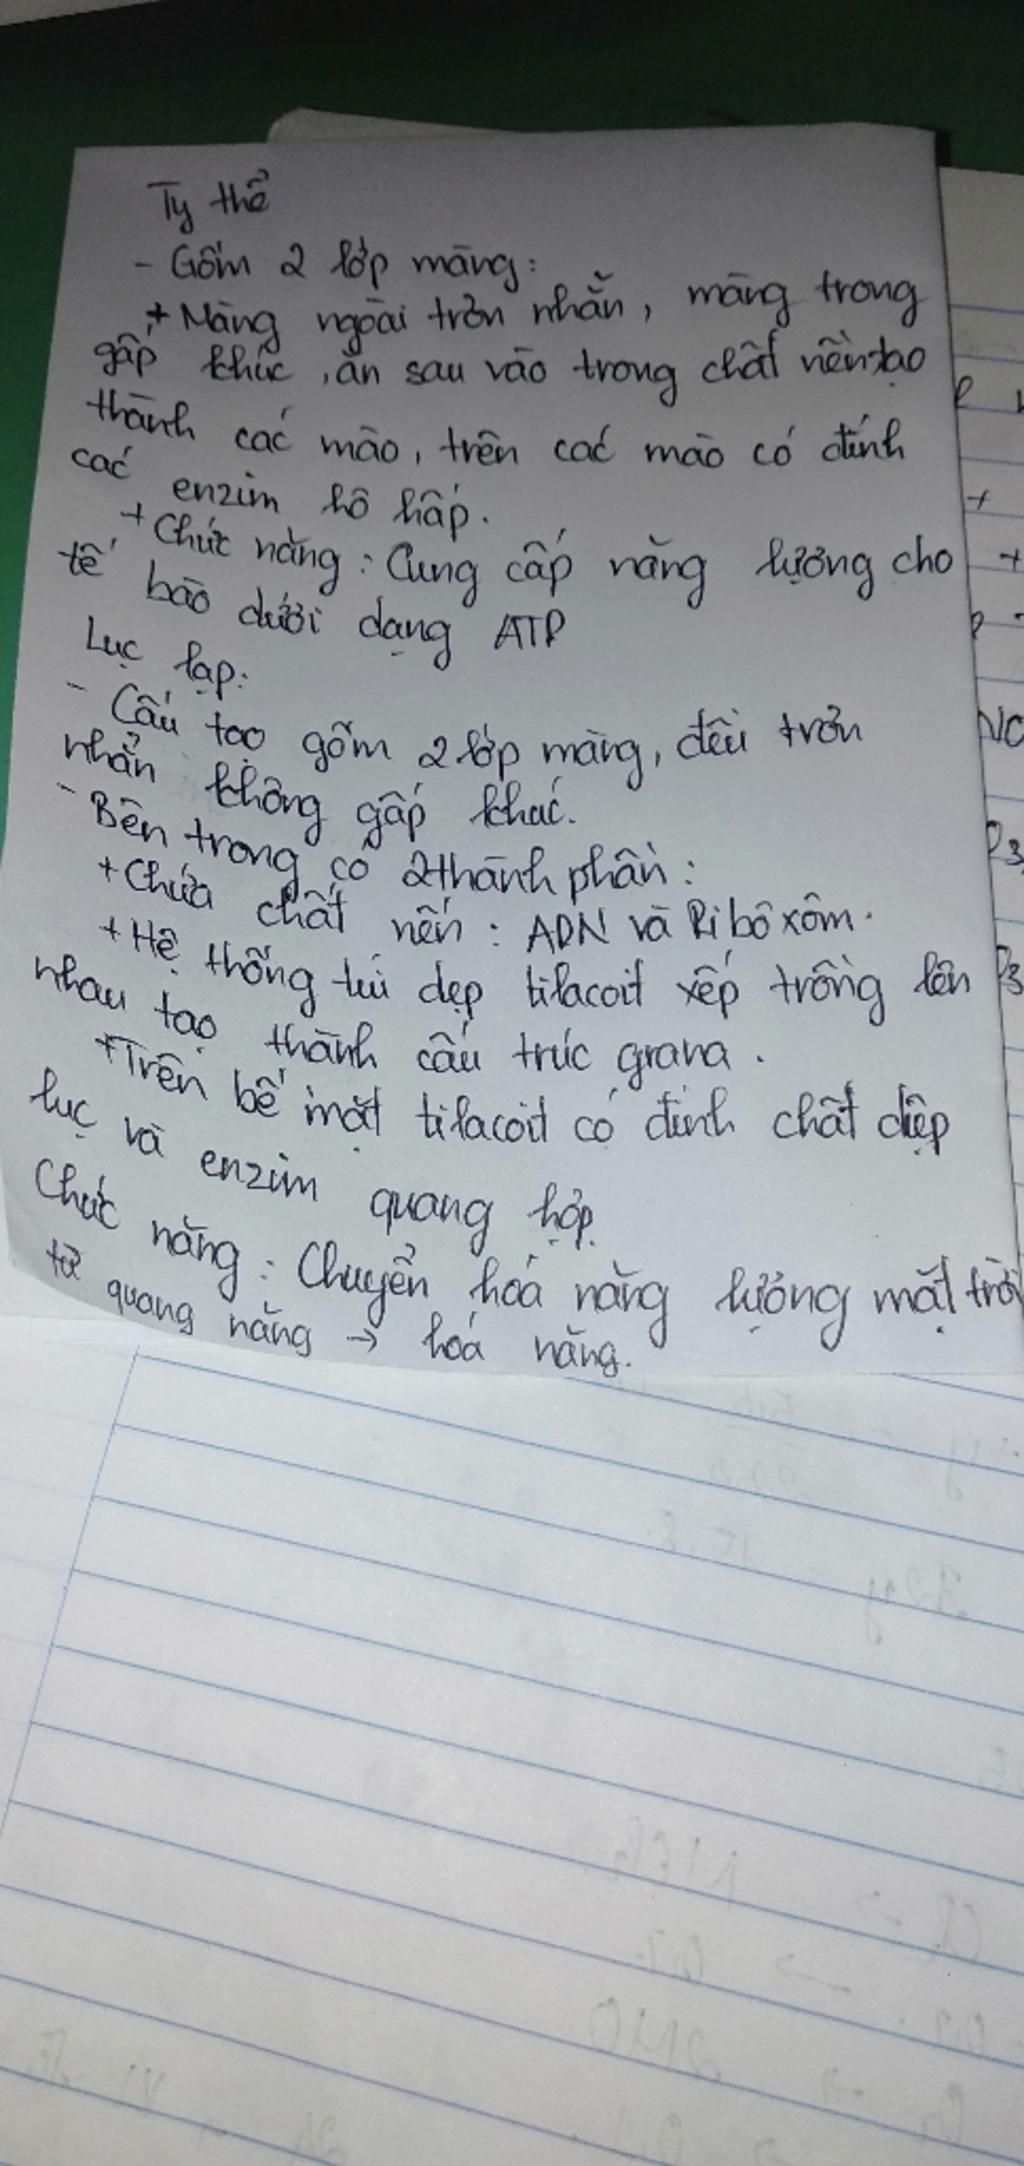 Ty thể
- Gồm 2 lớp màng:
+ Màng ngoài trơn nhẵn, màng trong
gấp khúc, ăn sau vào trong chất nền tạo
thành các mào, trên các mào có đính
các enzim hô hấp.
+ Chức năng: Cung cấp năng lượng cho
tế bào dưới dạng ATP
Lục lạp:
- Cấu tạo gồm 2 lớp màng, đều trơn
nhẵn không gấp khúc.
- Bên trong có 2 thành phần:
+ Chứa chất nền: ADN và Ribôxôm.
+ Hệ thống túi dẹp tilacoit xếp trồng lên
nhau tạo thành cấu trúc grana.
+ Trên bề mặt tilacoit có đính chất diệp
lục và enzim quang hợp.
Chức năng: Chuyển hoá năng lượng mặt trời
từ quang năng → hoá năng.